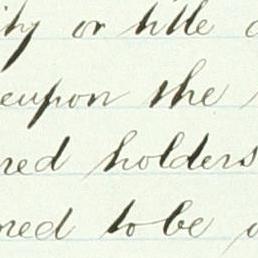 ity or title
eupon the
ned holders
med to be